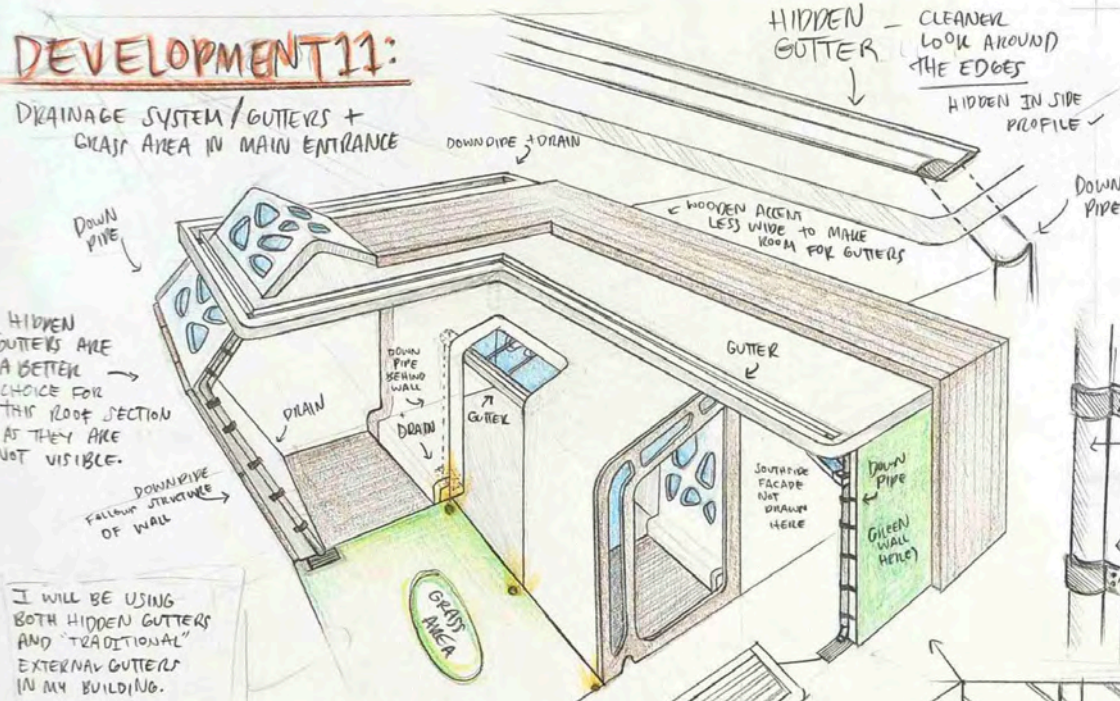 DEVELOPMENT 11:
DRAINAGE SYSTEM / GUTTERS +
GRASS AREA IN MAIN ENTRANCE
HIDDEN
GUTTER
— CLEANER
LOOK AROUND
THE EDGES
HIDDEN IN SIDE
PROFILE ✓
DOWNPIPE + DRAIN
DOWN
PIPE
DOWN
PIPE
WOODEN ACCENT
LESS WIDE TO MAKE
ROOM FOR GUTTERS
HIDDEN
GUTTERS ARE
A BETTER
CHOICE FOR
THIS ROOF SECTION
AS THEY ARE
NOT VISIBLE.
DRAIN
DOWN
PIPE
BEHIND
WALL
DRAIN
GUTTER
GUTTER
DOWNPIPE
FOLLOWS STRUCTURE
OF WALL
SOUTHSIDE
FACADE
NOT
DRAWN
HERE
DOWN
PIPE
(GREEN
WALL
HERE)
GRASS
AREA
I WILL BE USING
BOTH HIDDEN GUTTERS
AND "TRADITIONAL"
EXTERNAL GUTTERS
IN MY BUILDING.